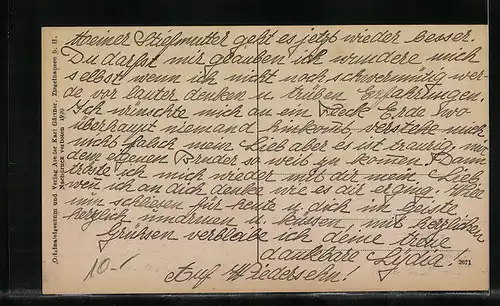 Meiner Stiefmutter geht es jetzt wieder besser.
Du darfst mir glauben ich wundere mich
selbst wenn ich nicht noch schwermütig wer-
de vor lauter denken u. trüben Erfahrungen.
Ich wünschte mich an ein Fleck Erde wo
überhaupt niemand hinkomt, versteke mich
nicht falsch mein Lieb aber es ist traurig, mit
dem eigenen Bruder so weit zu komen. Dann
tröste ich mich wieder mit dir mein Lieb
wen ich an dich denke wie es dir erging.
nun schliesen für heute u. dich im Geiste
herzlich umarmen u. küssen, mit herzlichen
Grüssen verbleibe ich deine treue
dankbare Lydia!
Auf Wiedersehn!
10-
2671
Originaleigentum und Verlag Atelier Karl Gärtner,
Nachdruck verboten